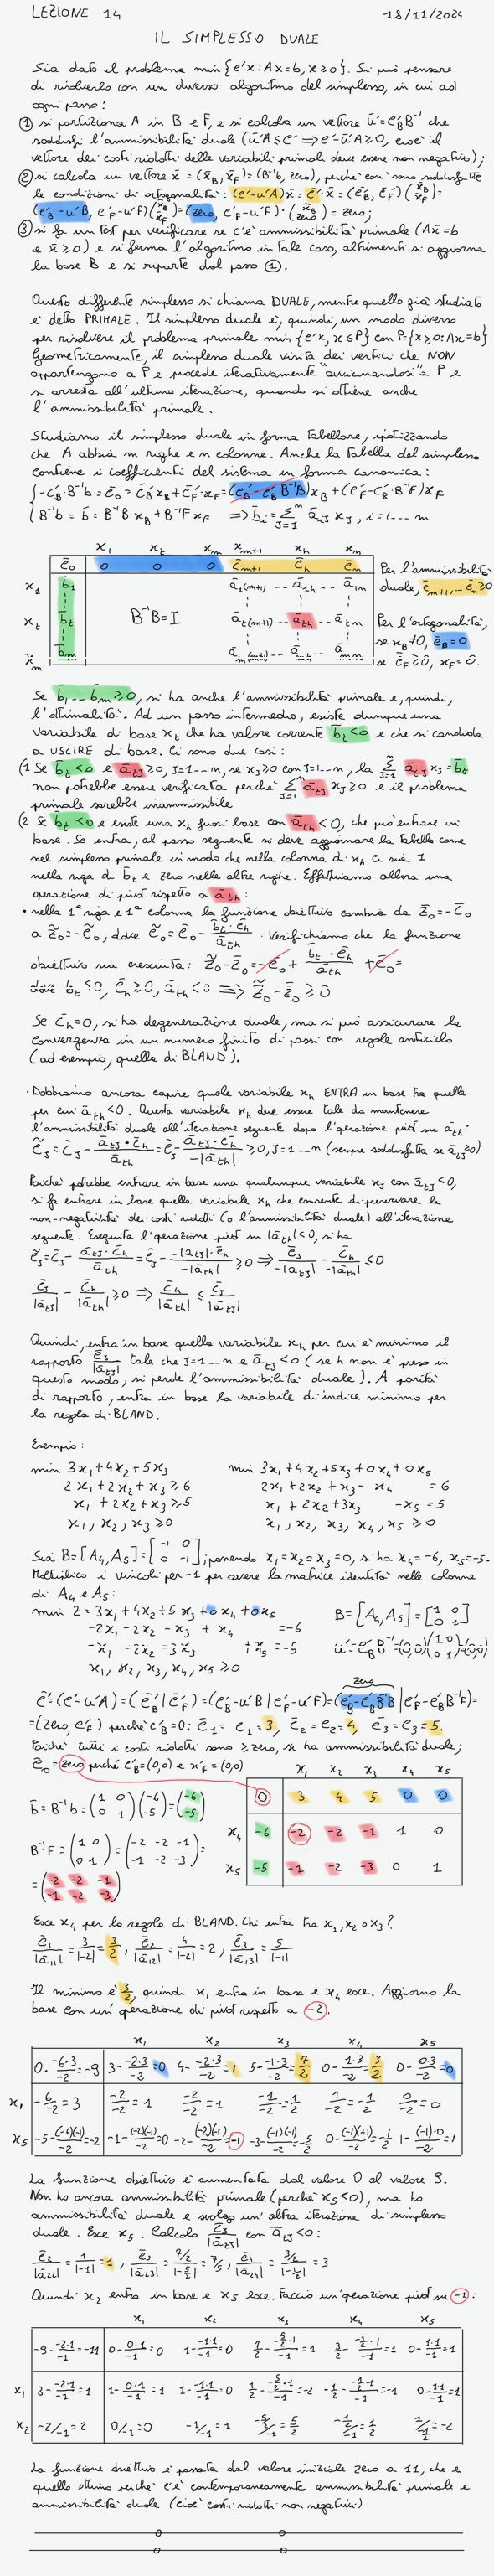 LEZIONE 14 18/11/2024
IL SIMPLESSO DUALE
Sia dato il problema min{c'x: Ax=b, x≥0}. Si può pensare
di risolverlo con un diverso algoritmo del simplesso, in cui ad
ogni passo:
① si partiziona A in B e F, e si calcola un vettore ū'=c'_B B⁻¹ che
soddisfi l'ammissibilità duale (ū'A≤c' ⟹ c'-ū'A≥0, cioè il
vettore dei costi ridotti delle variabili primali deve essere non negativo);
② si calcola un vettore x̄=(x̄_B, x̄_F)=(B⁻¹b, zero), perché così sono soddisfatte
le condizioni di ortogonalità: (c'-u'A)x̄ = c̄'·x̄ = (c̄'_B, c̄'_F)(x̄_B x̄_F)=
(c'_B-u'B, c'_F-u'F)(x̄_B x̄_F)=(zero, c'_F-u'F)·(x̄_B zero)= zero;
③ si fa un test per verificare se c'è ammissibilità primale (Ax̄=b
e x̄≥0) e si ferma l'algoritmo in tale caso, altrimenti si aggiorna
la base B e si riparte dal passo ①.
Questo differente simplesso si chiama DUALE, mentre quello già studiato
è detto PRIMALE. Il simplesso duale è, quindi, un modo diverso
per risolvere il problema primale min{c'x, x∈P} con P={x≥0: Ax=b}
Geometricamente, il simplesso duale visita dei vertici che NON
appartengono a P e procede iterativamente "avvicinandosi" a P e
si arresta all'ultima iterazione, quando si ottiene anche
l'ammissibilità primale.
Studiamo il simplesso duale in forma tabellare, ipotizzando
che A abbia m righe e n colonne. Anche la tabella del simplesso
contiene i coefficienti del sistema in forma canonica:
{-c'_B·B⁻¹b = c̄_0 = c̄'_B x_B + c̄'_F·x_F = (c'_B - c'_B B⁻¹B)x_B + (c'_F-c'_B·B⁻¹F)x_F
B⁻¹b = b̄ = B⁻¹B x_B + B⁻¹F x_F ⟹ b̄_i = Σ ā_ij x_J, i=1---m
x_1 x_t x_m x_m+1 x_h x_m
c̄_0 0 0 0 c̄_m+1 c̄_h c̄_m
x_1 b̄_1 ā_1(m+1) -- ā_1h --- ā_1m
x_t b̄_t B⁻¹B=I ā_t(m+1) -- ā_th --- ā_tm
x_m b̄_m ā_m(m+1) -- ā_mh -- ā_mm
Per l'ammissibilità
duale, c̄_m+1, ... c̄_m≥0
Per l'ortogonalità,
se x_B≠0, c̄_B=0
se c̄_F≥0, x_F=0.
Se b̄_1...b̄_m≥0, si ha anche l'ammissibilità primale e, quindi,
l'ottimalità. Ad un passo intermedio, esiste dunque una
variabile di base x_t che ha valore corrente b̄_t<0 e che si candida
a USCIRE di base. Ci sono due casi:
(1 Se b̄_t<0 e ā_tJ≥0, J=1---n, se x_J≥0 con J=1---n, la Σ ā_tJ x_J = b̄_t
non potrebbe essere verificata perché Σ ā_tJ x_J≥0 e il problema
primale sarebbe inammissibile
(2 Se b̄_t<0 e esiste una x_h fuori base con ā_th<0, che può entrare in
base. Se entra, al passo seguente si deve aggiornare la tabella come
nel simplesso primale in modo che nella colonna di x_h ci sia 1
nella riga di b̄_t e zero nelle altre righe. Effettuiamo allora una
operazione di pivot rispetto a ā_th:
• nella 1ª riga e 1ª colonna la funzione obiettivo cambia da z̄_0=-c̄_0
a z̃_0=-c̃_0, dove c̃_0=c̄_0-b̄_t·c̄_h/ā_th. Verifichiamo che la funzione
obiettivo sia cresciuta: z̃_0-z̄_0=-c̄_0+ b̄_t·c̄_h/ā_th +c̄_0=
dove b̄_t<0, c̄_h≥0, ā_th<0 ⟹ z̃_0-z̄_0≥0
Se c̄_h=0, si ha degenerazione duale, ma si può assicurare la
convergenza in un numero finito di passi con regole anticiclo
(ad esempio, quella di BLAND).
• Dobbiamo ancora capire quale variabile x_h ENTRA in base tra quelle
per cui ā_th<0. Questa variabile x_h deve essere tale da mantenere
l'ammissibilità duale all'iterazione seguente dopo l'operazione pivot su ā_th:
c̃_J=c̄_J - ā_tJ·c̄_h/ā_th = c̄_J - ā_tJ·c̄_h/-|ā_th| ≥0, J=1---n (sempre soddisfatta se ā_tJ≥0)
Poiché potrebbe entrare in base una qualunque variabile x_J con ā_tJ<0,
si fa entrare in base quella variabile x_h che consente di preservare la
non-negatività dei costi ridotti (o l'ammissibilità duale) all'iterazione
seguente. Eseguita l'operazione pivot su |ā_th|<0, si ha
c̃_J=c̄_J - ā_tJ·c̄_h/ā_th = c̄_J - -|ā_tJ|·c̄_h/-|ā_th| ≥0 ⟹ c̄_J/-|ā_tJ| - c̄_h/-|ā_th| ≤0
c̄_J/|ā_tJ| - c̄_h/|ā_th| ≥0 ⟹ c̄_h/|ā_th| ≤ c̄_J/|ā_tJ|
Quindi, entra in base quella variabile x_h per cui è minimo il
rapporto c̄_J/|ā_tJ| tale che J=1---n e ā_tJ<0 (se h non è preso in
questo modo, si perde l'ammissibilità duale). A parità
di rapporto, entra in base la variabile di indice minimo per
la regola di BLAND.
Esempio:
min 3x_1+4x_2+5x_3 min 3x_1+4x_2+5x_3+0x_4+0x_5
2x_1+2x_2+x_3≥6 2x_1+2x_2+x_3- x_4 = 6
x_1+2x_2+x_3≥5 x_1+2x_2+3x_3 -x_5 = 5
x_1, x_2, x_3≥0 x_1, x_2, x_3, x_4, x_5≥0
Sia B=[A_4,A_5]=[-1 0 0 -1]; ponendo x_1=x_2=x_3=0, si ha x_4=-6, x_5=-5.
Moltiplico i vincoli per -1 per avere la matrice identità nelle colonne
di A_4 e A_5:
min z=3x_1+4x_2+5x_3+0x_4+0x_5 B=[A_4,A_5]=[1 0 0 1]
-2x_1-2x_2-x_3+x_4 =-6 ū'=c'_B B⁻¹=(0,0)(1 0 0 1)=(0,0)
-x_1-2x_2-3x_3 +x_5=-5
x_1, x_2, x_3, x_4, x_5≥0
zero
c̄'=(c'-u'A)=(c̄'_B|c̄'_F)=(c'_B-u'B|c'_F-u'F)=(c'_B-c'_B B⁻¹B|c'_F-c'_B B⁻¹F)=
=(zero, c'_F) perché c'_B=0: c̄_1=c_1=3, c̄_2=c_2=4, c̄_3=c_3=5.
Poiché tutti i costi ridotti sono ≥zero, si ha ammissibilità duale;
c̄_0=zero perché c'_B=(0,0) e x'_F=(0,0)
b̄=B⁻¹b=(1 0 0 1)(-6 -5)=(-6 -5)
B⁻¹F=(1 0 0 1)=(-2 -2 -1 -1 -2 -3)=
=(-2 -2 -1 -1 -2 -3)
x_1 x_2 x_3 x_4 x_5
0 3 4 5 0 0
x_4 -6 -2 -2 -1 1 0
x_5 -5 -1 -2 -3 0 1
Esce x_4 per la regola di BLAND. Chi entra tra x_1, x_2 o x_3?
c̄_1/|ā_11|=3/|-2|=3/2, c̄_2/|ā_12|=4/|-2|=2, c̄_3/|ā_13|=5/|-1|
Il minimo è 3/2, quindi x_1 entra in base e x_4 esce. Aggiorno la
base con un'operazione di pivot rispetto a -2.
x_1 x_2 x_3 x_4 x_5
0 - -6·3/-2=-9 3 - -2·3/-2=0 4 - -2·3/-2=1 5 - -1·3/-2=7/2 0 - 1·3/-2=3/2 0 - 0·3/-2=0
x_1 -6/-2=3 -2/-2=1 -2/-2=1 -1/-2=1/2 1/-2=-1/2 0/-2=0
x_5 -5-(-6)(-1)/-2=-2 -1-(-2)(-1)/-2=0 -2-(-2)(-1)/-2=-1 -3-(-1)(-1)/-2=-5/2 0-(-1)(+1)/-2=-1/2 1-(-1)·0/-2=1
La funzione obiettivo è aumentata dal valore 0 al valore 9.
Non ho ancora ammissibilità primale (perché x_5<0), ma ho
ammissibilità duale e svolgo un'altra iterazione di simplesso
duale. Esce x_5. Calcolo c̄_J/|ā_tJ| con ā_tJ<0:
c̄_2/|ā_22|=1/|-1|=1, c̄_3/|ā_23|=7/2/|-5/2|=7/5, c̄_4/|ā_24|=3/2/|-1/2|=3
Quindi x_2 entra in base e x_5 esce. Faccio un'operazione pivot su -1:
x_1 x_2 x_3 x_4 x_5
-9 - -2·1/-1=-11 0 - 0·1/-1=0 1 - -1·1/-1=0 7/2 - -5/2·1/-1=1 3/2 - -1/2·1/-1=1 0 - 1·1/-1=1
x_1 3 - -2·1/-1=1 1 - 0·1/-1=1 1 - -1·1/-1=0 1/2 - -5/2·1/-1=-2 -1/2 - -1/2·1/-1=-1 0 - 1·1/-1=1
x_2 -2/-1=2 0/-1=0 -1/-1=1 -5/2/-1=5/2 -1/2/-1=1/2
La funzione obiettivo è passata dal valore iniziale zero a 11, che è
quello ottimo perché c'è contemporaneamente ammissibilità primale e
ammissibilità duale (cioè costi ridotti non negativi)